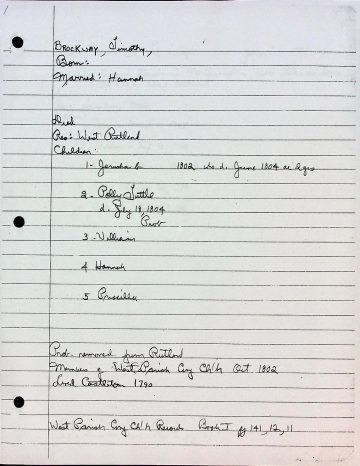 Brockway, Timothy,
Born:
Married: Hannah
Died
Res: West Rutland
Children:
1- Jerusha b 1802 who d. June 1804 ae 2yrs
2- Polly Tuttle
d. July 19, 1804
Prob
3 - William
4 Hannah
5 Priscilla
Prob. removed from Rutland
Members of West Parish Cong Ch'h Oct 1802
Lived Castleton 1790
West Parish Cong Ch'h Records Book I pg 141, 12, 11